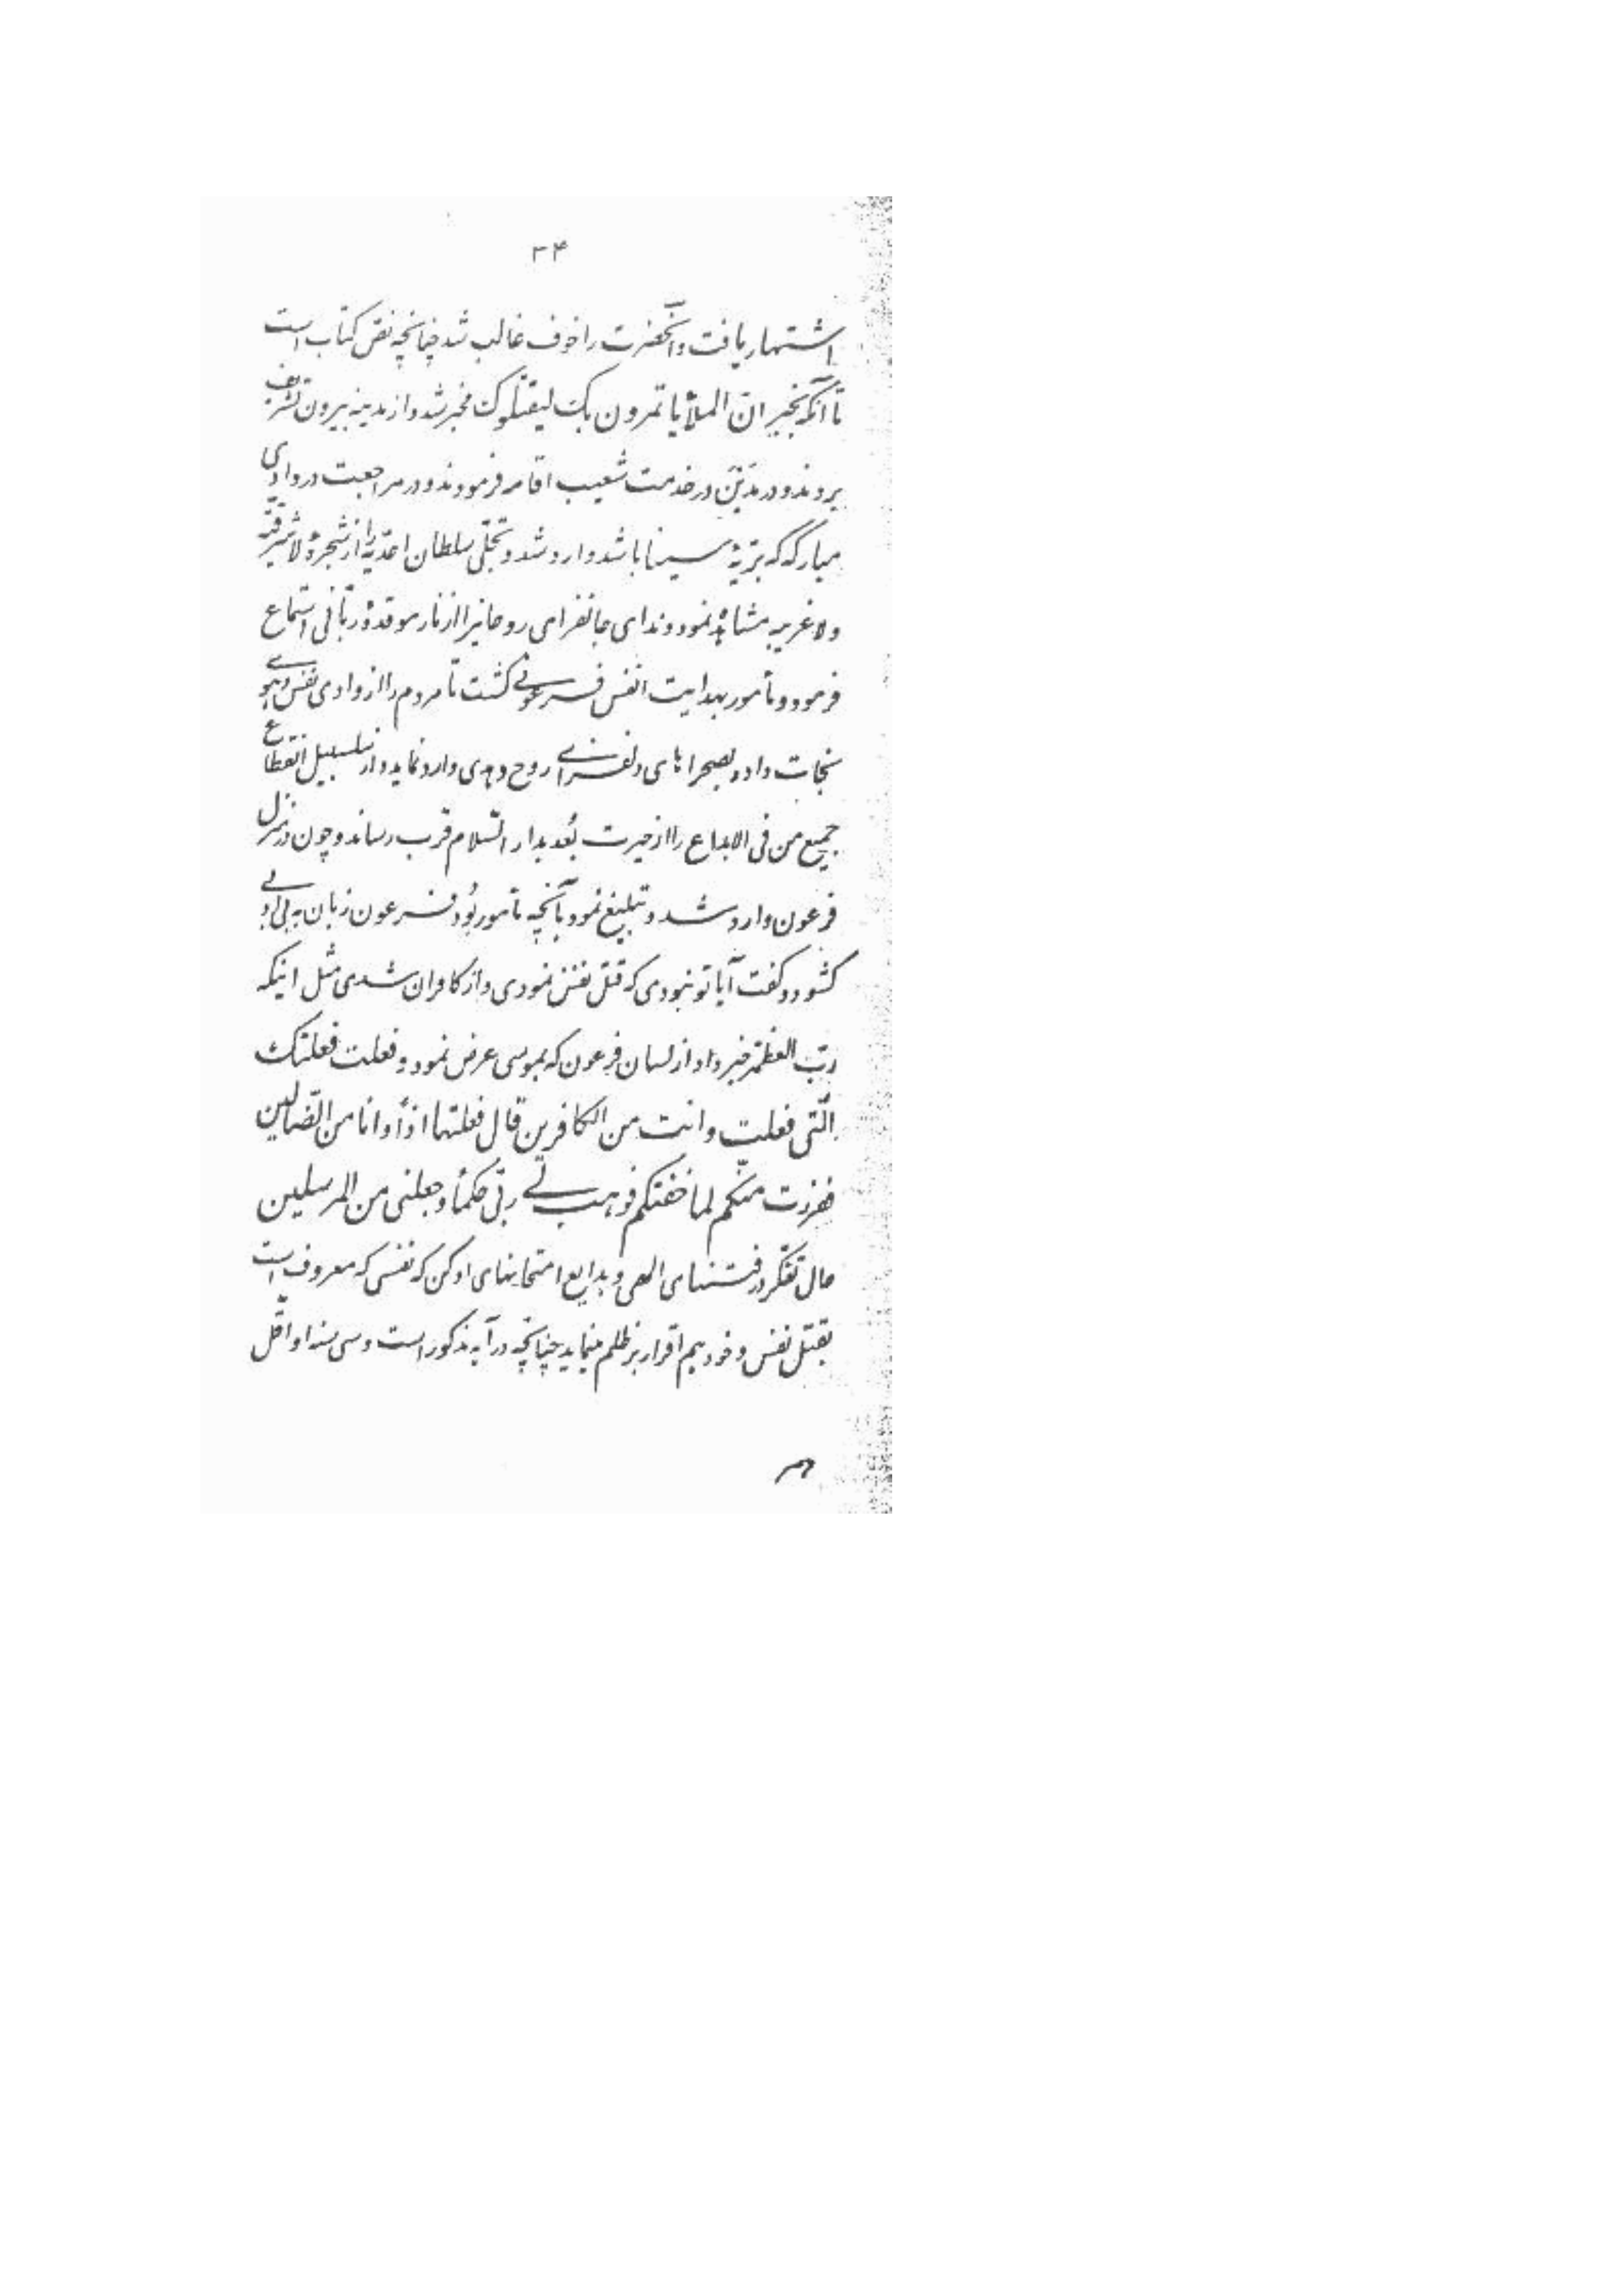 ۳۴
اشتهار یافت و آنحضرت را خوف غالب شد چنانچه نصّ کتاب است
تا آنکه بخبر انّ الملأ یاتمرون بک لیقتلوک مخبر شد و از مدینه بیرون تشریف
بردند و در مَدْیَن در خدمت شعیب اقامه فرمودند و در مراجعت در وادی
مبارکه که برّیّهٔ سینا باشد وارد شد و تجلّی سلطان احدیّه را از شجرهٔ لا شرقیّه
ولا غربیه مشاهده نمود و ندای جانفزای روحانیرا از نار موقدهٔ ربّانی استماع
فرمود و مأمور بهدایت انفس فرعونی گشت تا مردم را از وادی نفس و هوی
نجات داده بصحراهای دلفزای روح و هدی وارد نماید و از سلسبیل انقطاع
جمیع من فی الابداع را از حیرت بُعد بدار السّلام قرب رساند و چون در منزل
فرعون وارد شد و تبلیغ نمود بآنچه مأمور بُود فرعون زبان به بی ادبی
گشود و گفت آیا تو نبودی که قتل نفس نمودی و از کافران شدی مثل اینکه
ربّ العظمة خبر داد از لسان فرعون که بموسی عرض نمود و فعلت فعلتک
الّتی فعلت و انت من الکافرین قال فعلتها اذاً و انا من الضّالین
ففررت منکم لما خفتکم فوهب لی ربّی حکماً و جعلنی من المرسلین
حال تفکّر در فتنهای الهی و بدایع امتحانهای او کن که نفسی که معروف است
بقتل نفس و خود هم اقرار بر ظلم مینماید چنانچه در آیه مذکور است و سی سنه او اقلّ